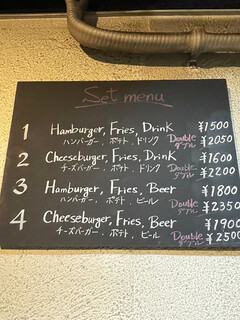 Set menu
1 Hamburger, Fries, Drink ¥1500
ハンバーガー、ポテト、ドリンク Double ダブル ¥2050
2 Cheeseburger, Fries, Drink ¥1600
チーズバーガー、ポテト、ドリンク Double ダブル ¥2200
3 Hamburger, Fries, Beer ¥1800
ハンバーガー、ポテト、ビール Double ダブル ¥2350
4 Cheeseburger, Fries, Beer ¥1900
チーズバーガー、ポテト、ビール Double ダブル ¥2500